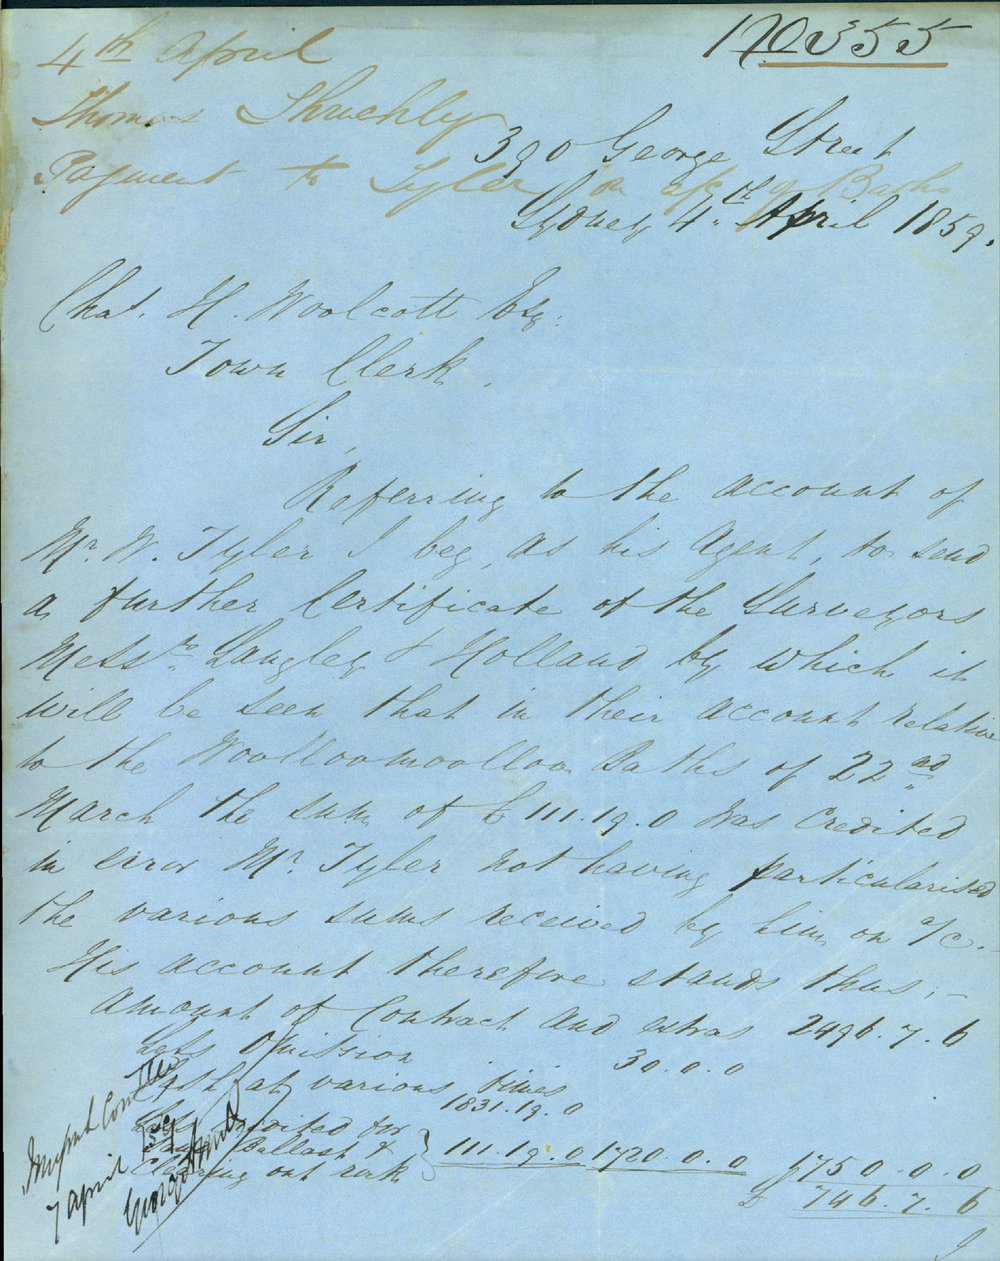 4th April
No 355
Thomas
390 George Street
Payment to Tyler on a/c of Baths
Sydney 4th April 1859.
Chas. H. Woolcott Esq:
Town Clerk,
Sir,
Referring to the account of
Mr. W. Tyler I beg, as his Agent, to send
a further Certificate of the Surveyors
Messrs. Langley & Holland by which it
will be seen that in their account relative
to the Woolloomoolloo Baths of 22nd
March the sum of £111.19.0 was credited
in error Mr. Tyler not having particularised
the various sums received by him on a/c.
His account therefore stands thus; -
Amount of Contract and extras 2496.7.6
Less Omission 30.0.0
Cash at various times
1831.19.0
Less credited for
Ballast &
Clearing out rock } 111.19.0 1720.0.0 1750.0.0
£ 746.7.6
7 April 59
George
I